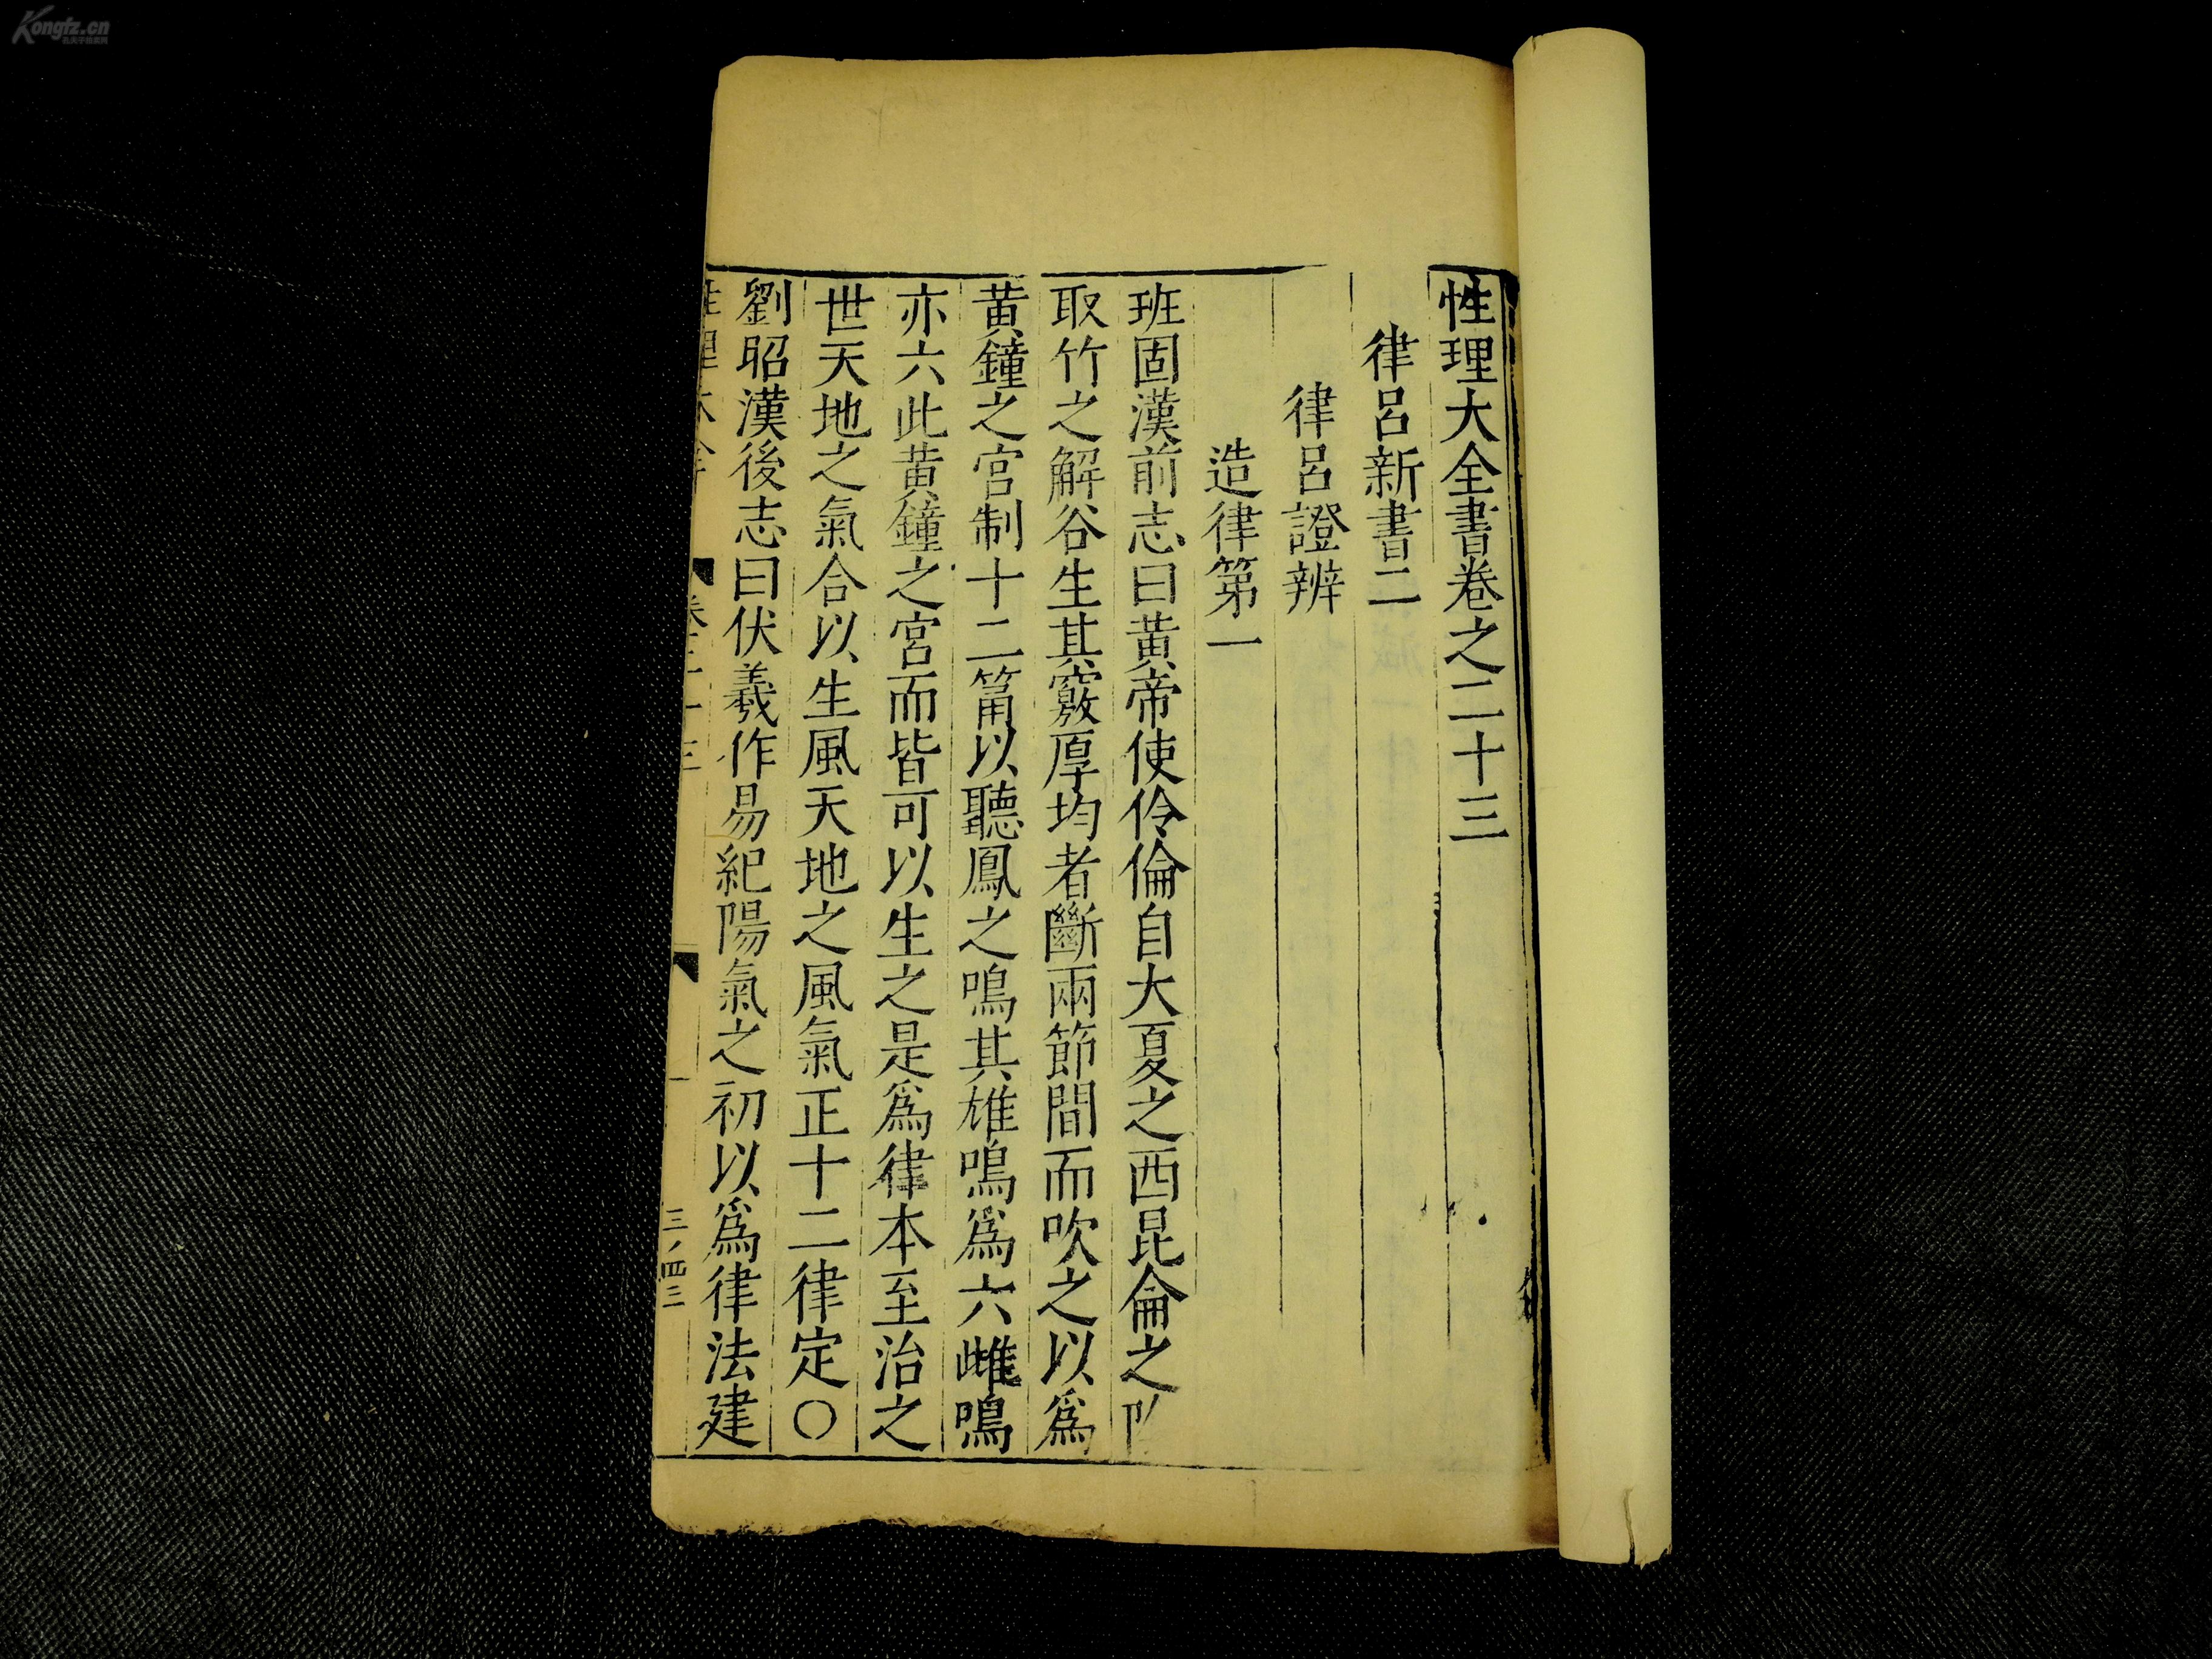 性理大全書卷之二十三
律呂新書二
律呂證辨
造律第一
班固漢前志曰黃帝使伶倫自大夏之西昆侖之
取竹之解谷生其竅厚均者斷兩節間而吹之以爲
黃鐘之宮制十二筩以聽鳳之鳴其雄鳴爲六雌鳴
亦六此黃鐘之宮而皆可以生之是爲律本至治之
世天地之氣合以生風天地之風氣正十二律定〇
劉昭漢後志曰伏羲作易紀陽氣之初以爲律法建
卷二十三
一
Kongfz.cn
孔夫子旧书网